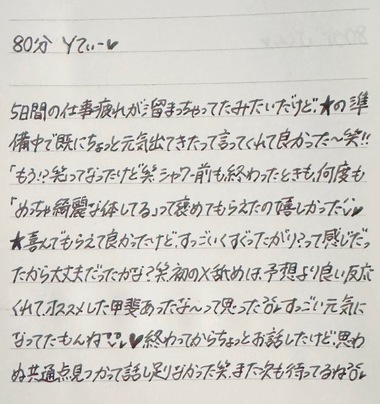 80分 Yてぃー♥
5日間の仕事疲れが溜まっちゃってたみたいだけど、★の準
備中で既にちょっと元気出てきたって言ってくれて良かった〜笑!!
「もう!?笑」ってなったけど笑 シャワー前も終わったときも、何度も
「めちゃ綺麗な体してる」って褒めてもらえたの嬉しかった♥
★喜んでもらえて良かったけど、すっごいくすぐったがり?って感じだっ
たから大丈夫だったかな?笑 初の×舐めは、予想より良い反応
くれてオススメした甲斐あったな〜って思った すっごい元気に
なってたもんね ♥ 終わってからちょっとお話したけど、思わ
ぬ共通点見つかって話し足りなかった笑 また次も待ってるね